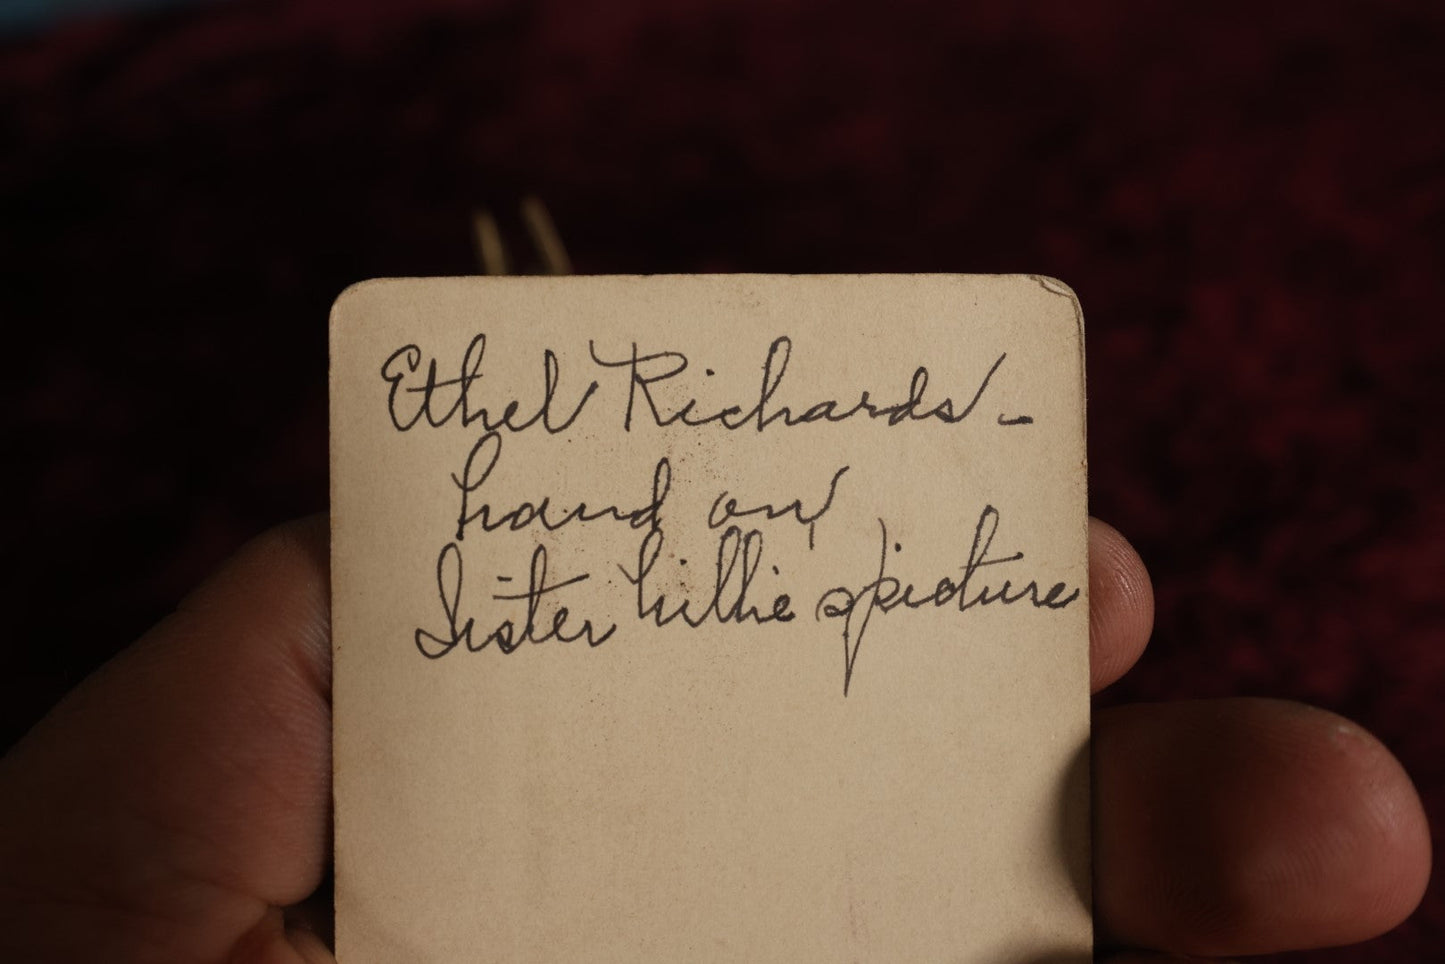 Ethel Richards -
hand on
Sister Lillie's picture